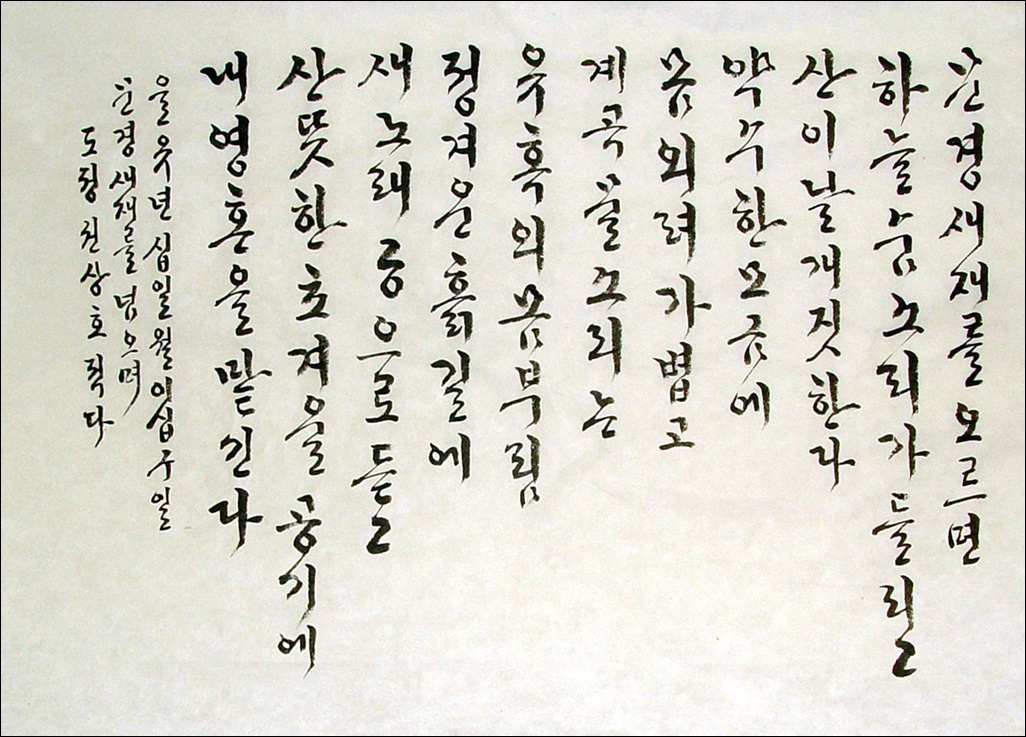 문경새재를 오르면
하늘 숨소리가 들리고
산이 날개짓 한다
약수 한 모금에
몸 외려 가볍고
계곡 물소리는
유혹의 몸부림
정겨운 흙길에
새 노래 등으로 듣고
산뜻한 초겨울 공기에
내 영혼을 맡긴다
을유년 십일월 이십구일
문경새재를 넘으며
도정 권상호 적다